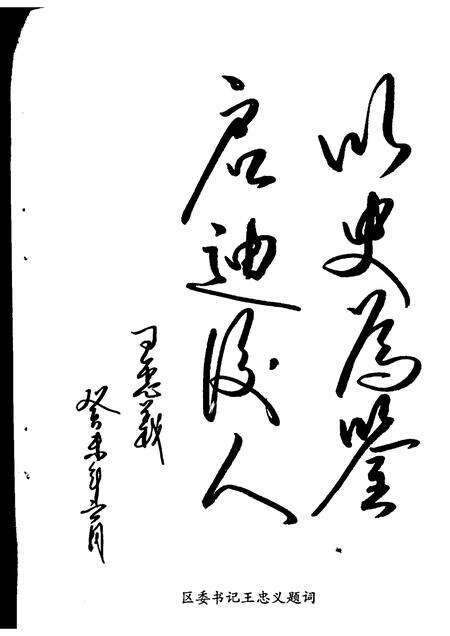 以史为鉴
启迪后人
王忠义
癸未年六月
区委书记王忠义题词